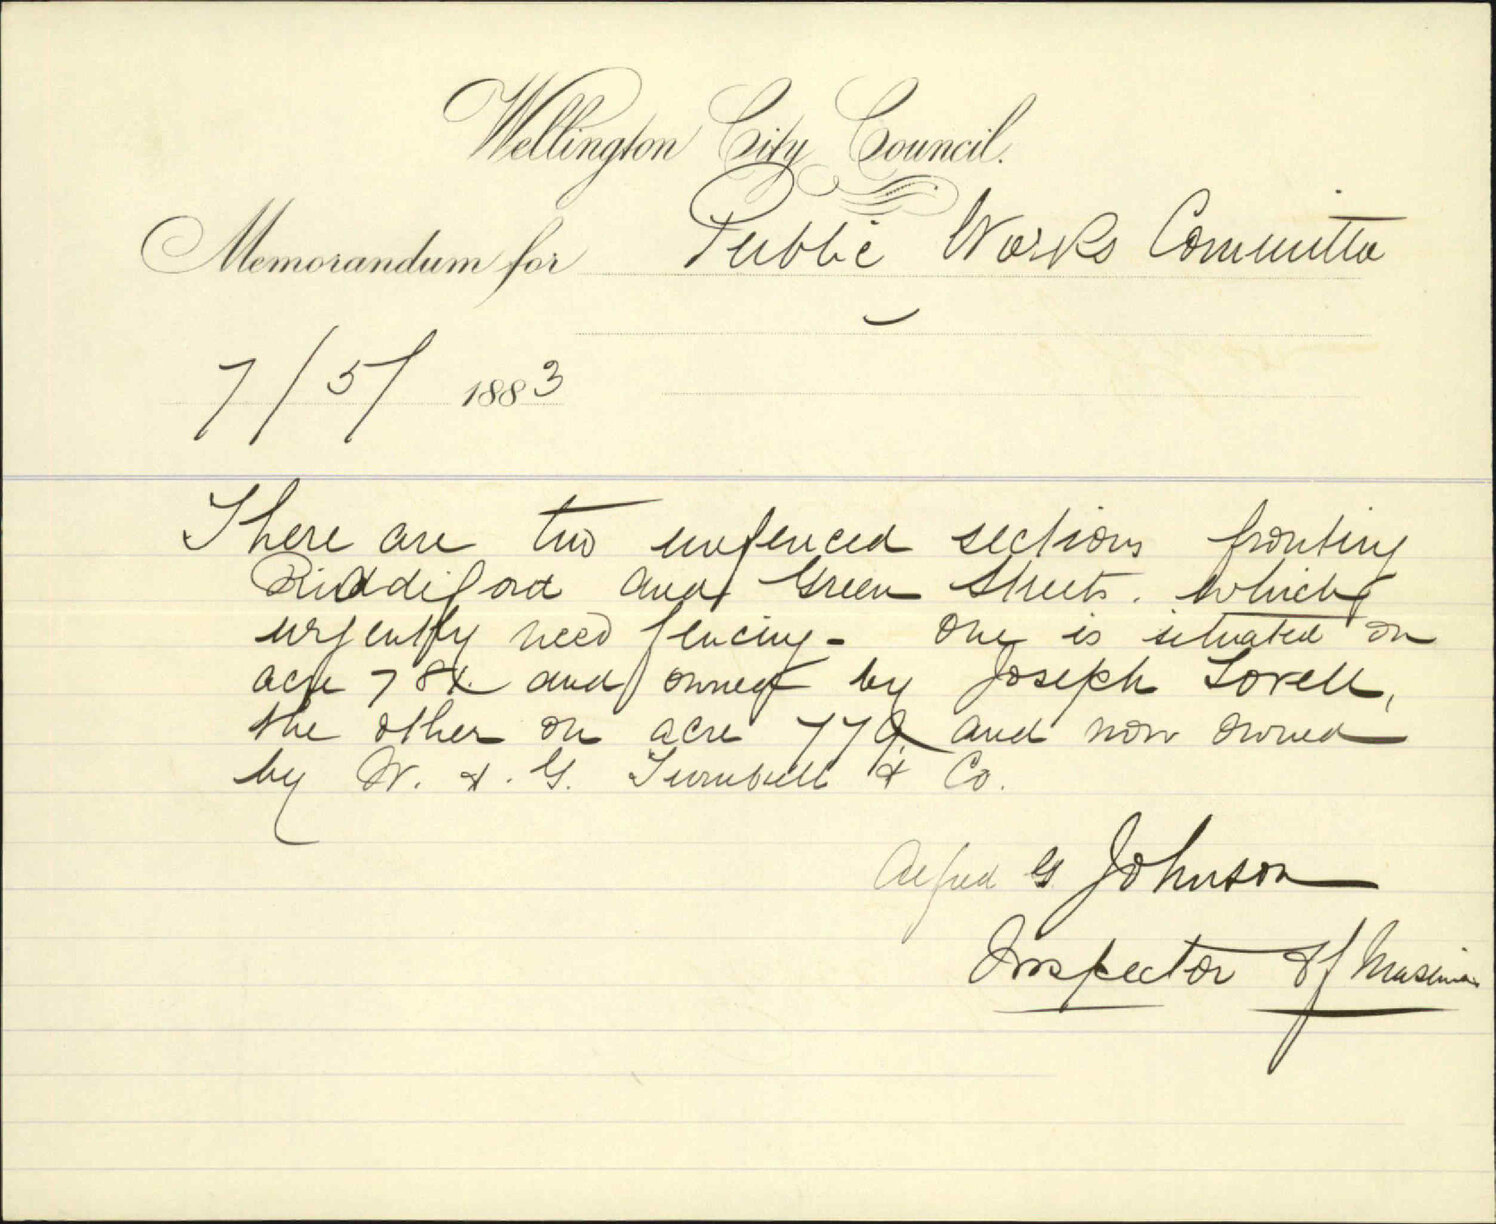 Wellington City Council.
Memorandum for Public Works Committee
7/5/1883
There are two unfenced sections fronting
Riddiford and Green Streets. which
urgently need fencing - One is situated on
acre 784 and owned by Joseph Lovell,
the other on acre 779 and now owned
by W. & G. Turnbull & Co.
Alfred G Johnson
Inspector of Nuisances